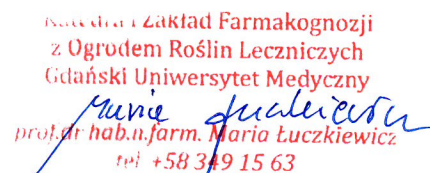 Katedra i Zakład Farmakognozji
z Ogrodem Roślin Leczniczych
Gdański Uniwersytet Medyczny
prof.dr hab.n.farm. Maria Łuczkiewicz
tel. +58 349 15 63